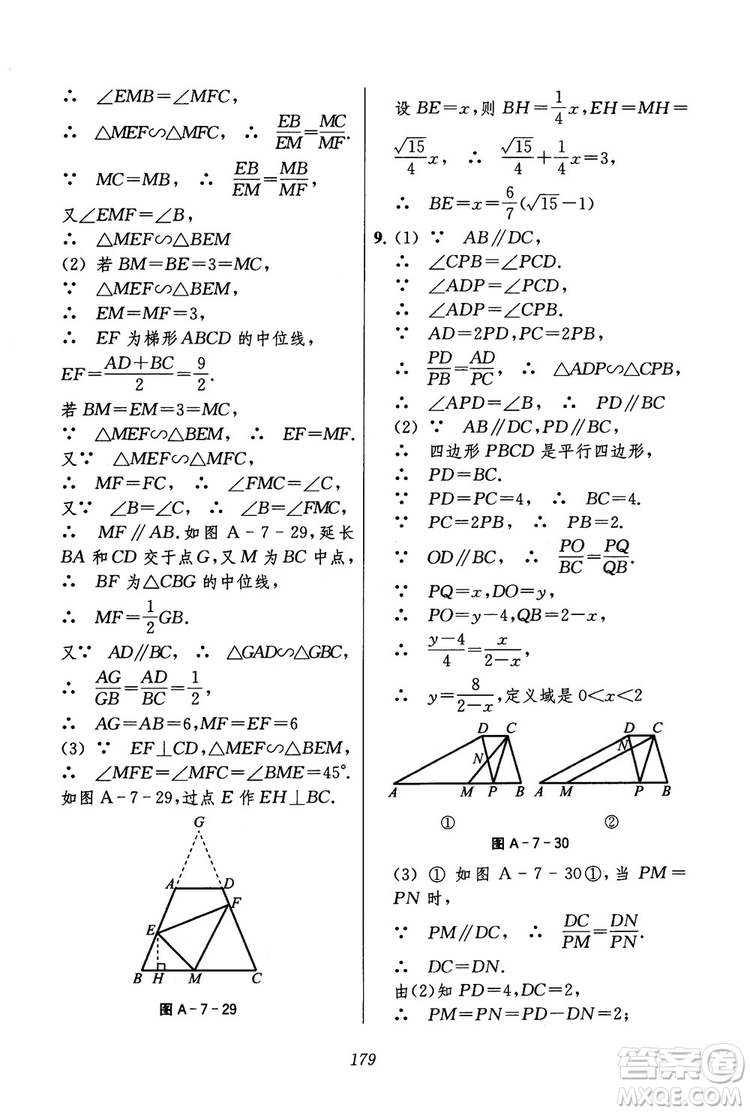 ∴ ∠EMB=∠MFC,
∴ △MEF∽△MFC, ∴ EB/EM=MC/MF.
∵ MC=MB, ∴ EB/EM=MB/MF,
又∠EMF=∠B,
∴ △MEF∽△BEM
(2) 若 BM=BE=3=MC,
∵ △MEF∽△BEM,
∴ EM=MF=3,
∴ EF 为梯形 ABCD 的中位线,
EF=(AD+BC)/2=9/2.
若 BM=EM=3=MC,
∵ △MEF∽△BEM, ∴ EF=MF.
又∵ △MEF∽△MFC,
∴ MF=FC, ∴ ∠FMC=∠C,
又∵ ∠B=∠C, ∴ ∠B=∠FMC,
∴ MF∥AB.如图 A-7-29,延长
BA 和 CD 交于点 G,又 M 为 BC 中点,
∴ BF 为△CBG 的中位线,
∴ MF=1/2GB.
又∵ AD∥BC, ∴ △GAD∽△GBC,
∴ AG/GB=AD/BC=1/2,
∴ AG=AB=6,MF=EF=6
(3) ∵ EF⊥CD,△MEF∽△BEM,
∴ ∠MFE=∠MFC=∠BME=45°.
如图 A-7-29,过点 E 作 EH⊥BC.
G
A D
F
E
B H M C
图 A-7-29
设 BE=x,则 BH=1/4x,EH=MH=
√15/4x, ∴ √15/4+1/4x=3,
∴ BE=x=6/7(√15-1)
9. (1) ∵ AB∥DC,
∴ ∠CPB=∠PCD.
∵ ∠ADP=∠PCD,
∴ ∠ADP=∠CPB.
∵ AD=2PD,PC=2PB,
∴ PD/PB=AD/PC, ∴ △ADP∽△CPB,
∴ ∠APD=∠B, ∴ PD∥BC
(2) ∵ AB∥DC,PD∥BC,
∴ 四边形 PBCD 是平行四边形,
∴ PD=BC.
∵ PD=PC=4, ∴ BC=4.
∵ PC=2PB, ∴ PB=2.
∵ OD∥BC, ∴ PO/BC=PQ/QB.
∵ PQ=x,DO=y,
∴ PO=y-4,QB=2-x,
∴ (y-4)/4=x/(2-x),
∴ y=8/(2-x),定义域是 0<x<2
D C
N
A M P B
D C
N
A M P B
① ②
图 A-7-30
(3) ① 如图 A-7-30①,当 PM=
PN 时,
∵ PM∥DC, ∴ DC/PM=DN/PN.
∴ DC=DN.
由(2)知 PD=4,DC=2,
∴ PM=PN=PD-DN=2;
179
答案圈
MXQE.COM